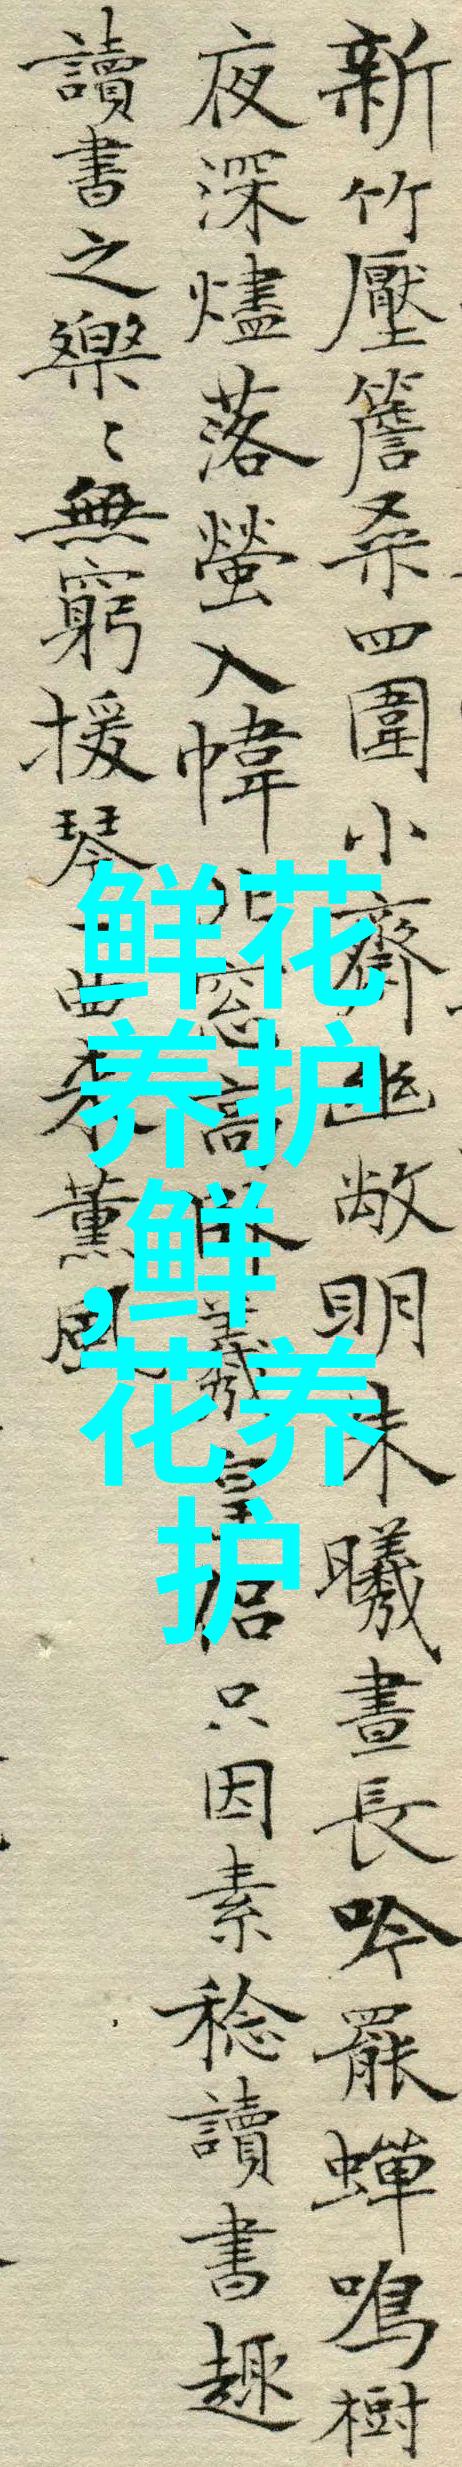 新竹壓簷桑四圍小齋幽敞明朱曦晝長吟罷蟬鳴樹
夜深燼落螢入幃北窓高卧羲皇侣只因素稔讀書趣
讀書之樂〻無窮援琴一曲来薰風
鲜花
养护
,鲜
花养
护